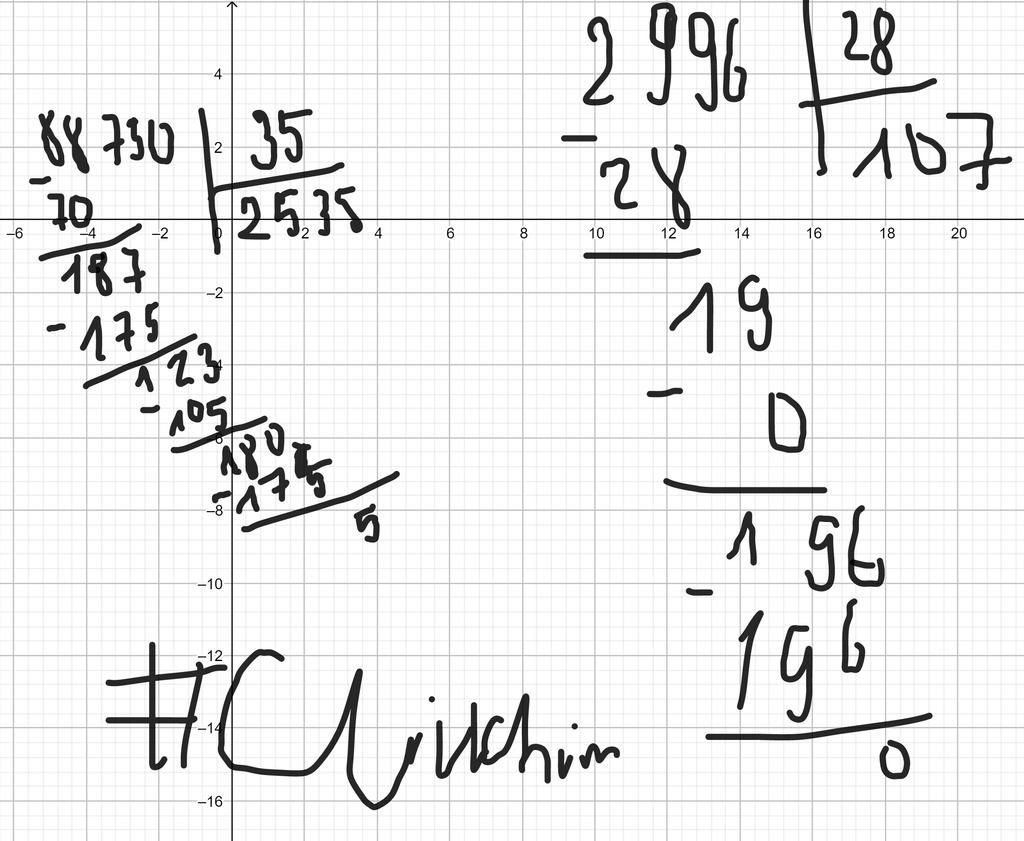 88730 35
- 70 2535
187
- 175
123
- 105
180
- 175
5
2996 28
- 28 107
19
- 0
196
- 196
0
4
2
-6 -4 -2 0 2 4 6 8 10 12 14 16 18 20
-2
-4
-6
-8
-10
-12
-14
-16